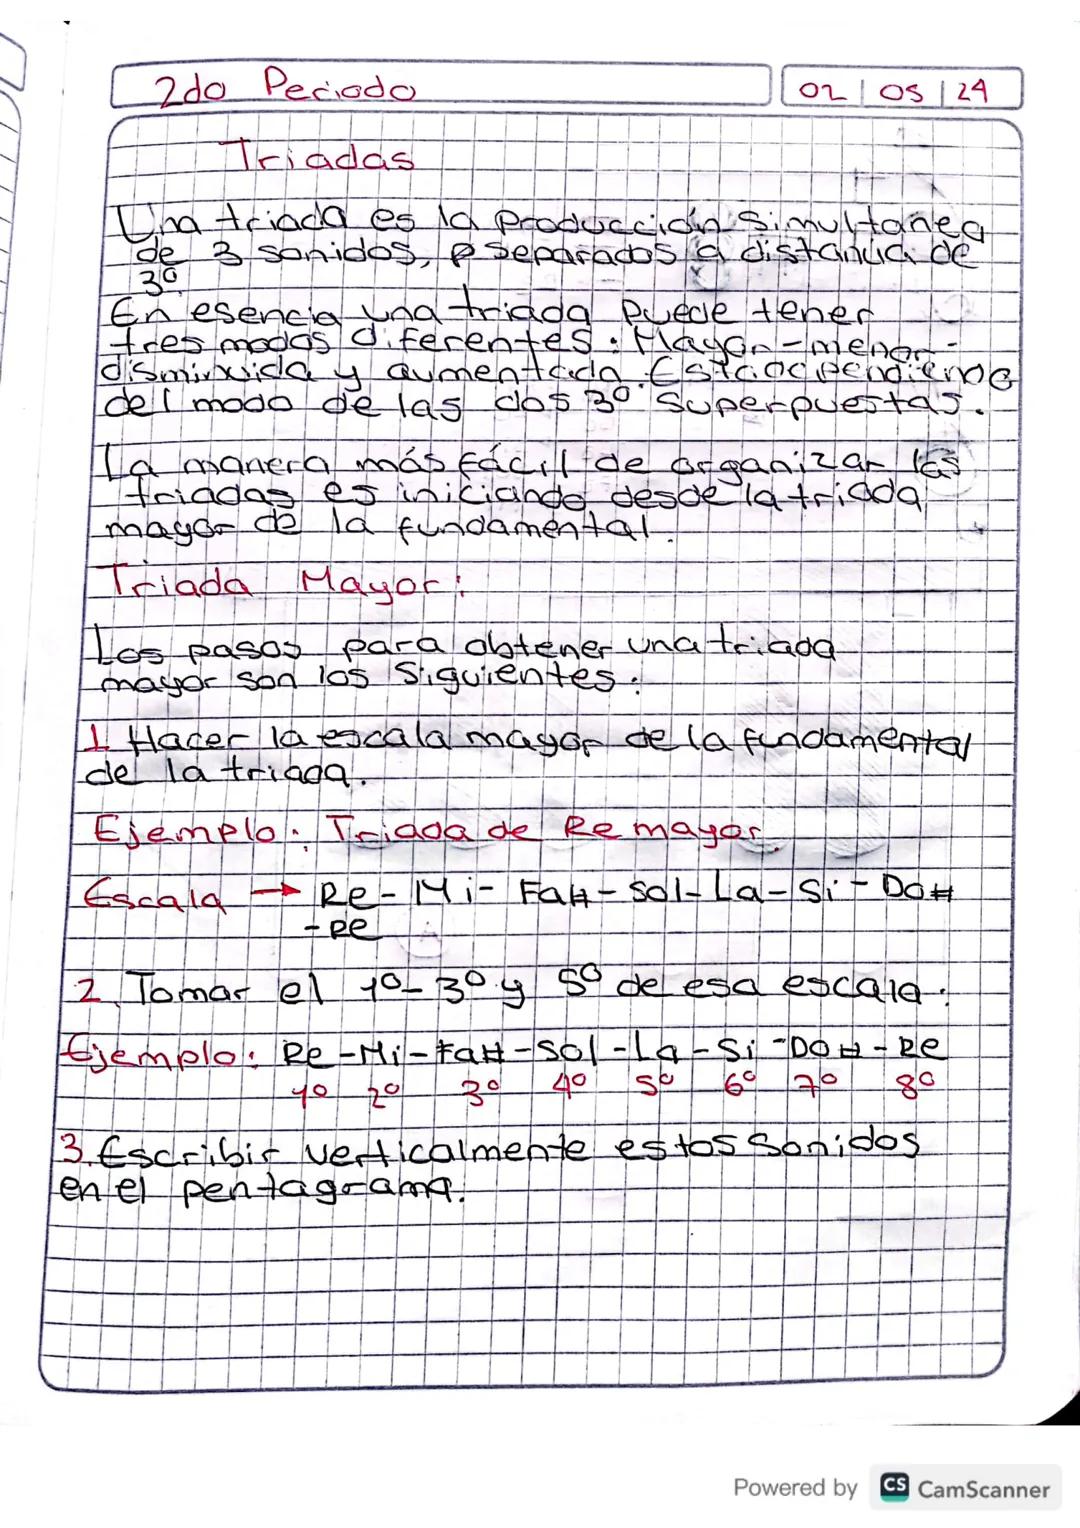 2do Periodo
02 | 05 | 24
Triadas
Una triada es la producción simultanea
de 3 sonidos, separados a distancia de
3º
En esencia una triada puede tener
tres modos diferentes: Mayor-menor-
disminuida y aumentada. Esto dependiendo
del modo de las dos 3º superpuestas.
La manera más fácil de organizar las
triadas es iniciando desde la triada
mayor de la fundamental.
Triada Mayor:
Los pasos para obtener una triada
mayor son los siguientes:
1. Hacer la escala mayor de la fundamental
de la triada.
Ejemplo: Triada de Re mayor.
Escala → Re-Mi-Fa#-Sol-La-Si-Do#
-Re
2. Tomar el 1º-3º y 5º de esa escala:
Ejemplo: Re-Mi-Fa#-Sol-La-Si-Do#-Re
1º 2º 3º 4º 5º 6º 7º 8º
3. Escribir verticalmente estos sonidos
en el pentagrama.
Powered by CS CamScanner